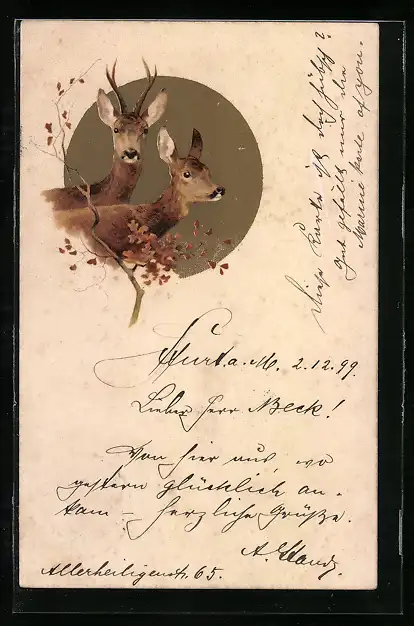 Ffurt a. M. 2.12.99.
Lieber Herr Beck!
Von hier aus, wo
gestern glücklich an-
kam – herzliche Grüße.
A.
Allerheiligenstr. 65.
Diese Karte ist doch hübsch?
Gut gefällt mir die
Marine Karte of you.